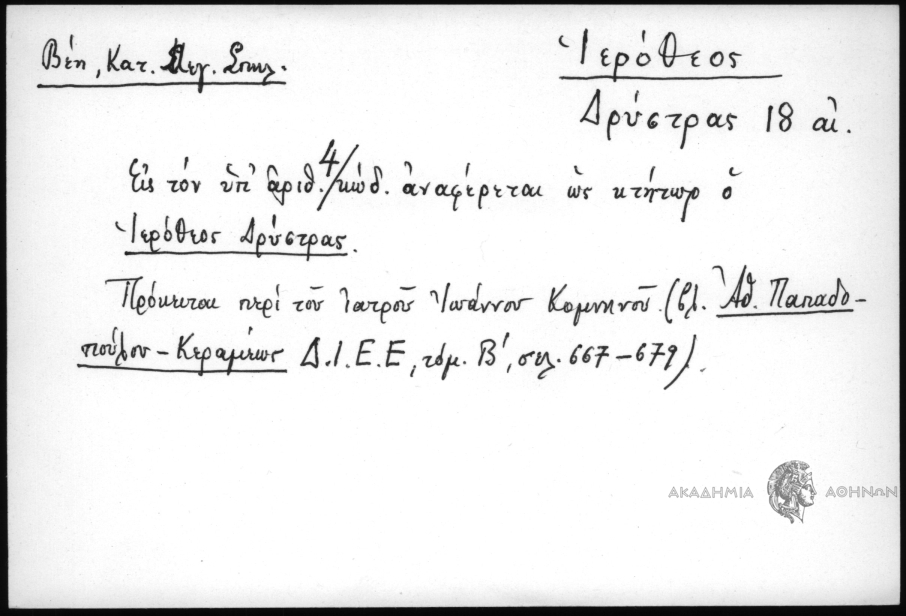 Βέη, Κατ. Μεγ. Σπηλ.
Ἱερόθεος
Δρύστρας 18 αἰ.
Εἰς τὸν ὑπ' ἀριθ. 4/κώδ. ἀναφέρεται ὡς κτήτωρ ὁ
Ἱερόθεος Δρύστρας.
Πρόκειται περὶ τοῦ ἰατροῦ Ἰωάννου Κομνηνοῦ. (βλ. Ἀθ. Παπαδο-
πούλου-Κεραμέως Δ.Ι.Ε.Ε, τόμ. Β', σελ. 667-679).
ΑΚΑΔΗΜΙΑ ΑΘΗΝΩΝ